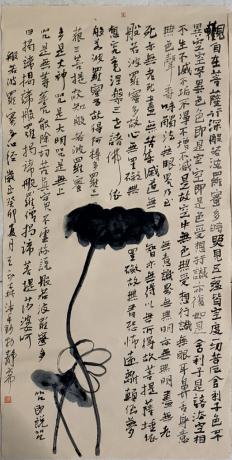 觀自在菩薩行深般若波羅蜜多時照見五蘊皆空度一切苦厄舍利子色不
異空空不異色色即是空空即是色受想行識亦復如是舍利子是諸法空相
不生不滅不垢不淨不增不減是故空中無色無受想行識無眼耳鼻舌身意
無色聲香味觸法無眼界乃至
無意識界無無明亦無無明盡乃至無老
死亦無老死盡無苦集滅道無
智亦無得以無所得故菩提薩埵依
般若波羅蜜多故心無罣礙無
罣礙故無有恐怖遠離顛倒夢
想究竟涅槃三世諸佛依
般若波羅蜜多故得阿耨多羅三
藐三菩提故知般若波羅蜜
多是大神咒是大明咒是無上
咒是無等等咒能除一切苦真實不虛故說般若波羅蜜多
咒即說咒
曰揭諦揭諦波羅揭諦波羅僧揭諦菩提薩婆訶
般若波羅蜜多心經 歲在癸卯夏月